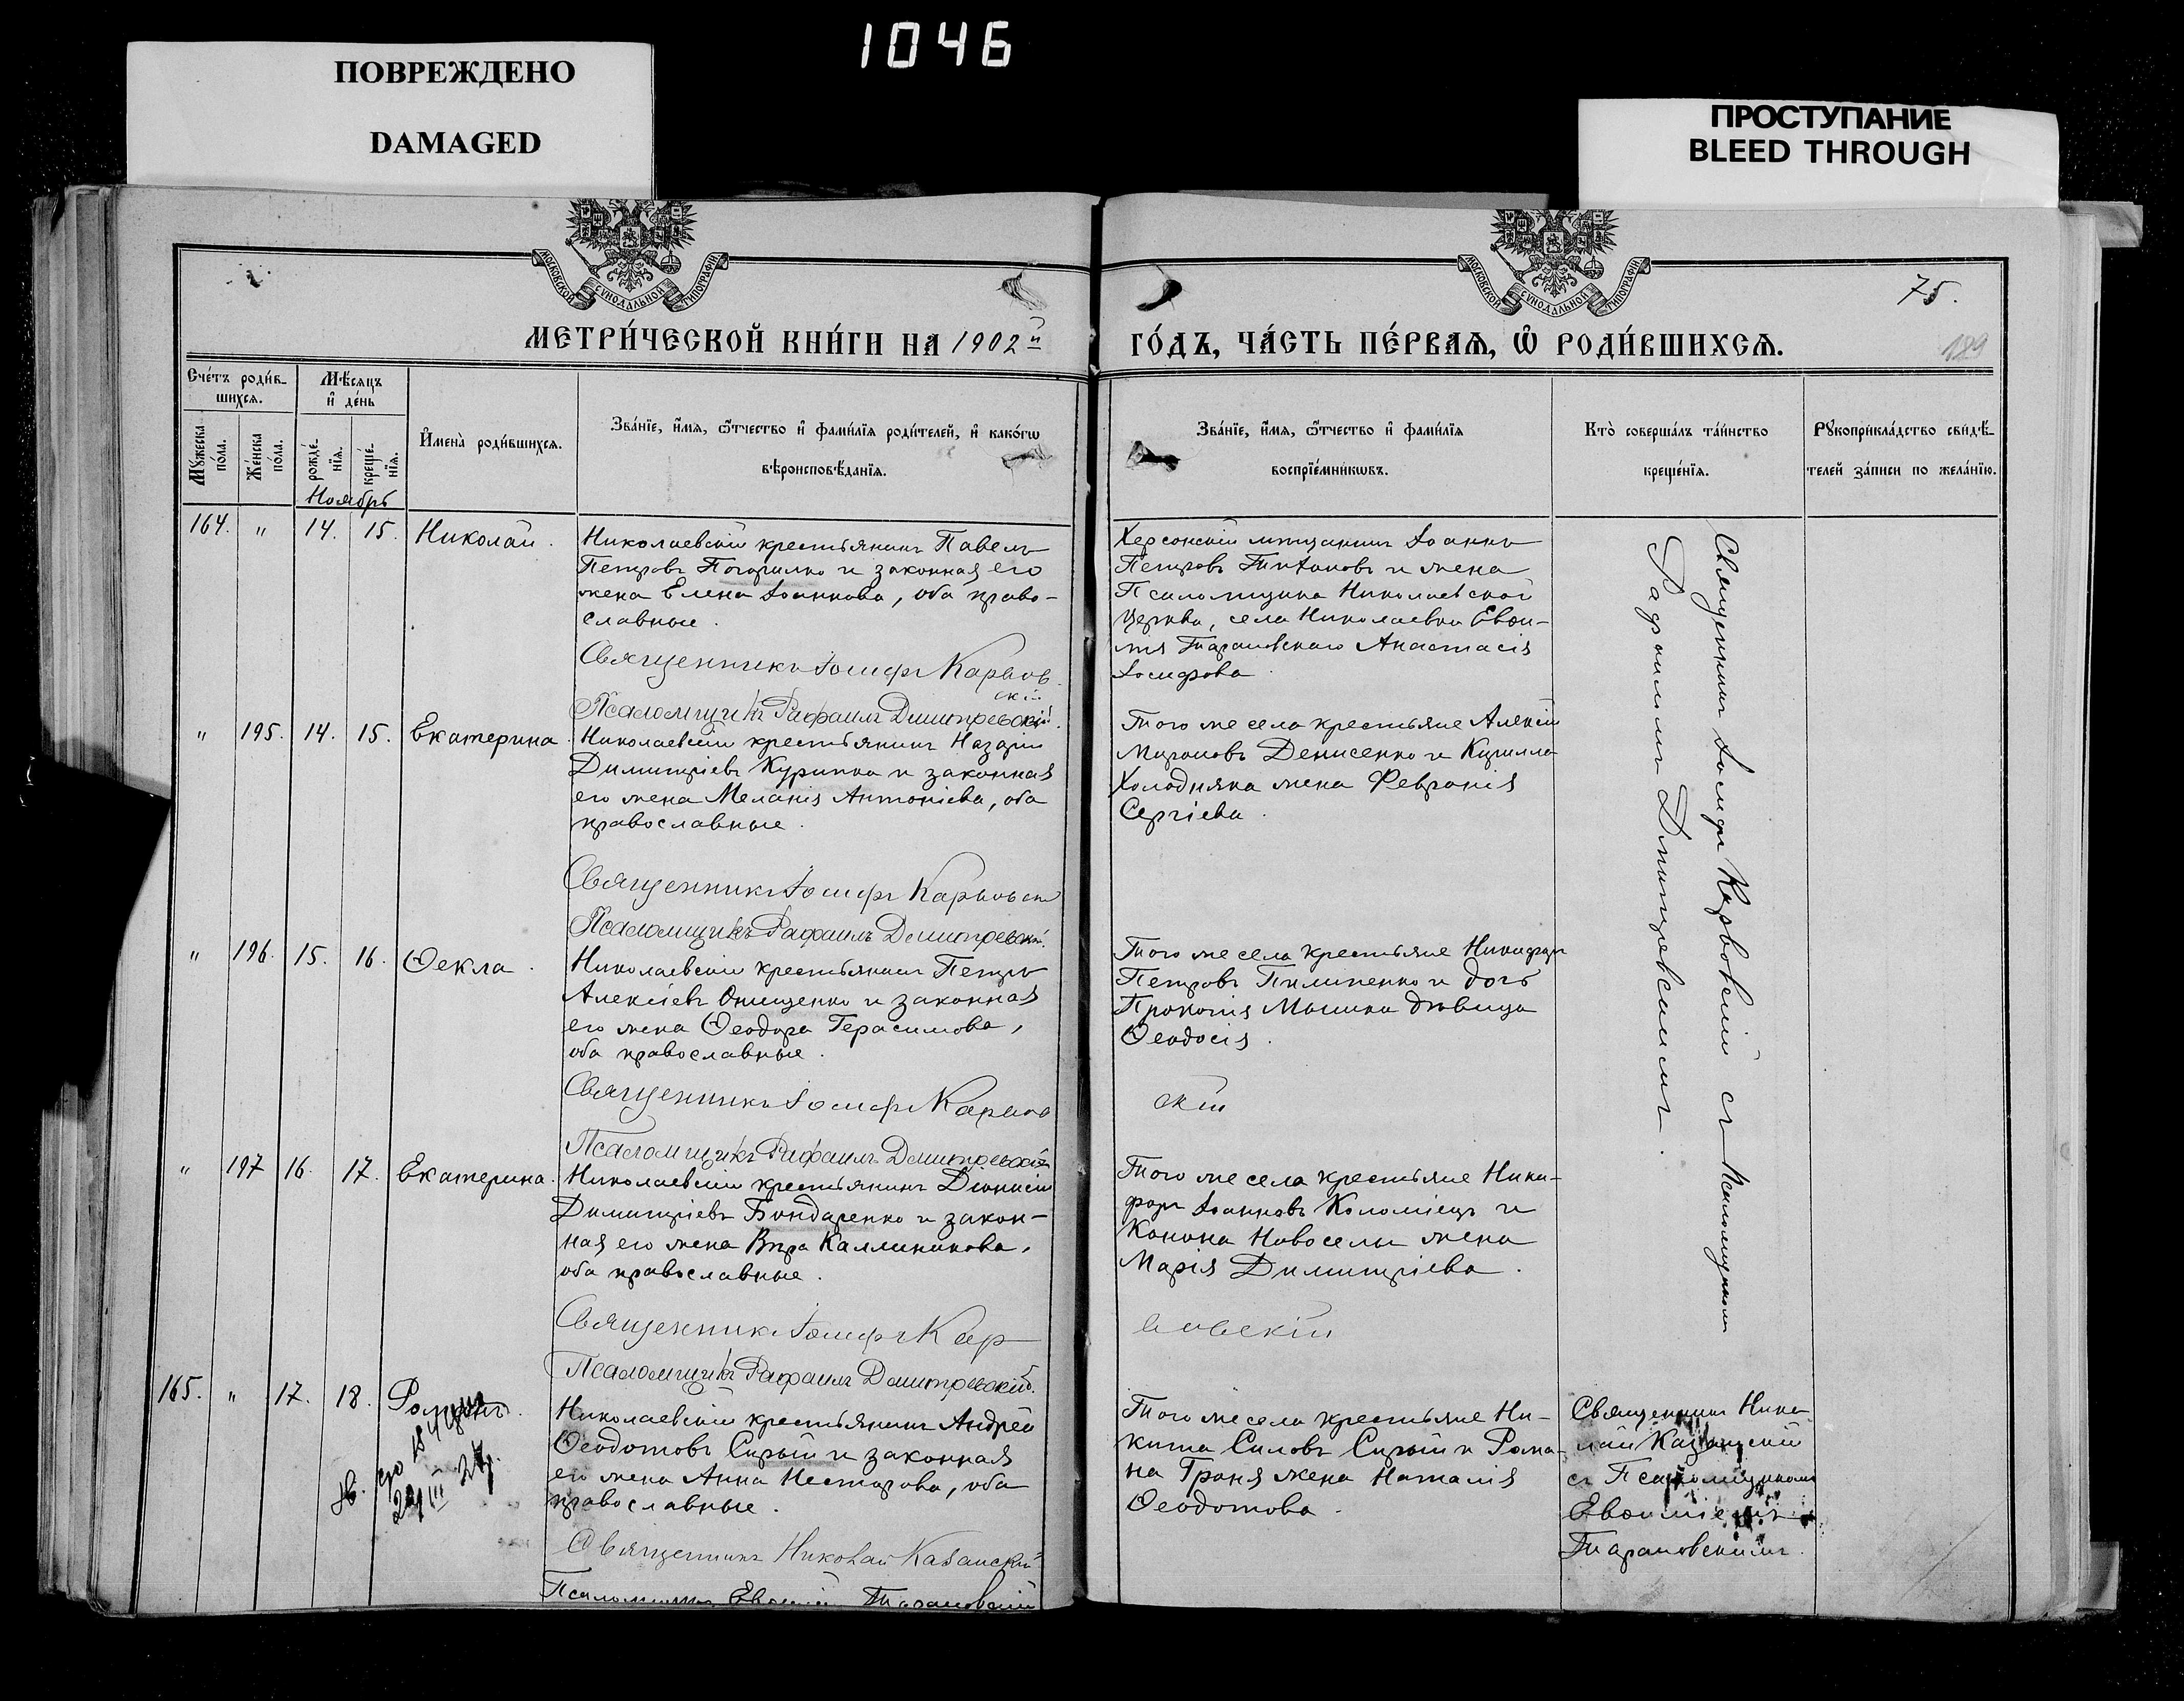 1046
ПОВРЕЖДЕНО
DAMAGED
ПРОСТУПАНИЕ
BLEED THROUGH
МОСКОВСКОЙ СѴНОДАЛЬНОЙ ТИПОГРАФІИ
МОСКОВСКОЙ СѴНОДАЛЬНОЙ ТИПОГРАФІИ
75.
189
МЕТРИ́ЧЕСКОЙ КНИ́ГИ НА 1902й
ГО́ДЪ, ЧА́СТЬ ПЕ́РВАѦ, Ѽ РОДИ́ВШИХСѦ.
Сче́тъ роди́в-
шихсѧ.
Мꙋ́жеска
по́ла.
Же́нска
по́ла.
Мѣ́сѧцъ
и҆ де́нь
рожде́-
нїѧ.
креще́-
нїѧ.
Ноябрь
И҆мена̀ роди́вшихсѧ.
Зва́нїе, и҆́мѧ, ѻ҆́тчество и҆ фами́лїѧ роди́телей, и҆ како́гѡ
вѣроисповѣ́данїѧ.
Зва́нїе, и҆́мѧ, ѻ҆́тчество и҆ фами́лїѧ
воспрїе́мникѡвъ.
Кто̀ соверша́лъ та́инство
креще́нїѧ.
Рꙋкоприкла́дство свидѣ́-
телей за́писи по жела́нїю.
164. " 14. 15. Николай.
Николаевскій крестьянинъ Павелъ
Петровъ и законная его
жена Елена Іоаннова, оба право-
славные.
Священникъ Іосифъ Карвов
скій
Псаломщикъ Рафаилъ Димитревскій.
Херсонскій мѣщанинъ Іоаннъ
Петровъ и жена
Псаломщика Николаевской
церкви, села Николаевки Евѳи-
мія Тарановскаго Анастасія
Іосифова
Священникъ Іосифъ Карвовскій съ Псаломщикомъ
Рафаиломъ Димитревскимъ.
" 195. 14. 15. Екатерина.
Николаевскій крестьянинъ Назарій
Димитріевъ Курипка и законная
его жена Меланія Антоніева, оба
православные.
Священникъ Іосифъ Карвовскій
Псаломщикъ Рафаилъ Димитревскій.
Того же села крестьяне Алексій
Мироновъ Денисенко и Кирилла
Холодняка жена Февронія
Сергіева.
" 196. 15. 16. Ѳекла.
Николаевскій крестьянинъ Петръ
Алексіевъ Онищенко и законная
его жена Ѳеодора Герасимова,
оба православные.
Священникъ Іосифъ Карвов
скій
Псаломщикъ Рафаилъ Димитревскій
Того же села крестьяне Никифоръ
Петровъ Пилипенко и дочь
Прокопія дѣвица
Ѳеодосія.
" 197 16. 17. Екатерина.
Николаевскій крестьянинъ Діонисій
Димитріевъ Бондаренко и закон-
ная его жена Вѣра Каллиникова,
оба православные.
Священникъ Іосифъ Кар
вовскій
Псаломщикъ Рафаилъ Димитревскій.
Того же села крестьяне Ники-
форъ Іоанновъ Коломіецъ и
Конона Новоселы жена
Марія Димитріева.
165. " 17. 18. Романъ.
Николаевскій крестьянинъ Андрей
Ѳеодотовъ Сирый и законная
его жена Анна Несторова, оба
православные.
Священникъ Николай Казанскій
Псаломщикъ Евѳимій Тарановскій
Того же села крестьяне Ни-
кита Силовъ Сирый и Рома-
на жена Наталія
Ѳеодотова.
Священникъ Нико-
лай Казанскій
съ Псаломщикомъ
Евѳиміемъ
Тарановскимъ.